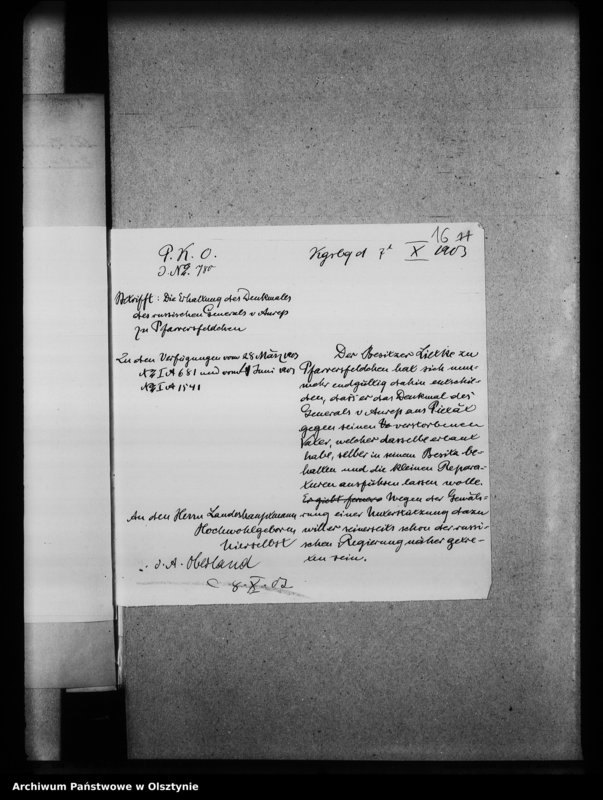 16
P. K. O.
J. No. 780
Kgsbg d 7t X 1903
Betrifft: Die Erhaltung des Denkmales
des russischen Generals v Anreß
zu Pfarrersfeldchen
Zu den Verfügungen vom 28 März 1903
No I A 681 und vom Juni 1903
No I A 1541
Der Besitzer Lietke zu
Pfarrersfeldchen hat sich nun-
mehr endgültig dahin entschie-
den, dass er das Denkmal des
Generals v Anreß aus Pietät
gegen seinen verstorbenen
Vater, welcher dasselbe erbaut
habe, selber in seinem Besitz be-
halten und die kleinen Repara-
turen ausführen lassen wolle.
Er giebt ferner Wegen der Gewäh-
rung einer Unterstützung dazu
will er seinerseits schon der russi-
schen Regierung näher getre-
ten sein.
An den Herrn Landeshauptmann
Hochwohlgeboren
Hierselbst
J. A. Oberland
8. X. 03
Archiwum Państwowe w Olsztynie